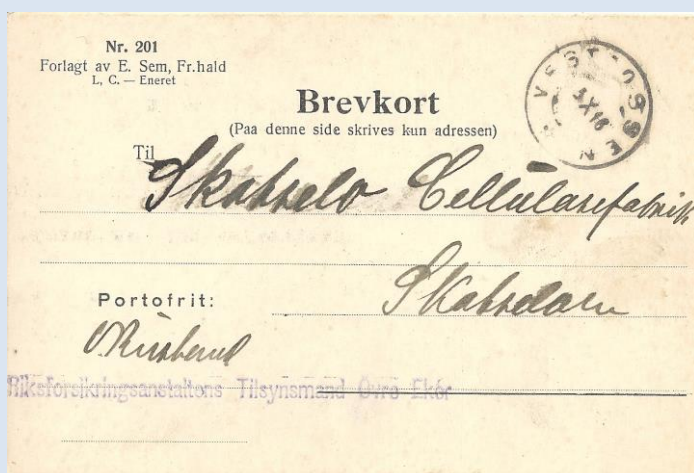 Nr. 201
Forlagt av E. Sem, Fr.hald
L. C. — Eneret
Brevkort
(Paa denne side skrives kun adressen)
VESTFOSSEN
5 X 16
Til
Skotselv Cellulosefabrik
Portofrit:
Riksforsikringsanstaltens Tilsynsmand Øvre Eker